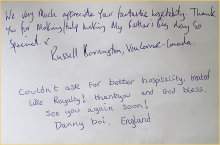 We very Much appreciate your fantastic hospitality. Thank
you for Making/help making My Father's big day So
Special.
Russell Bonnington, Vancouver-Canada.
Couldn't ask for better hospitality, treated
like Royalty! thankyou and God bless.
See you again soon!
Danny boi, England